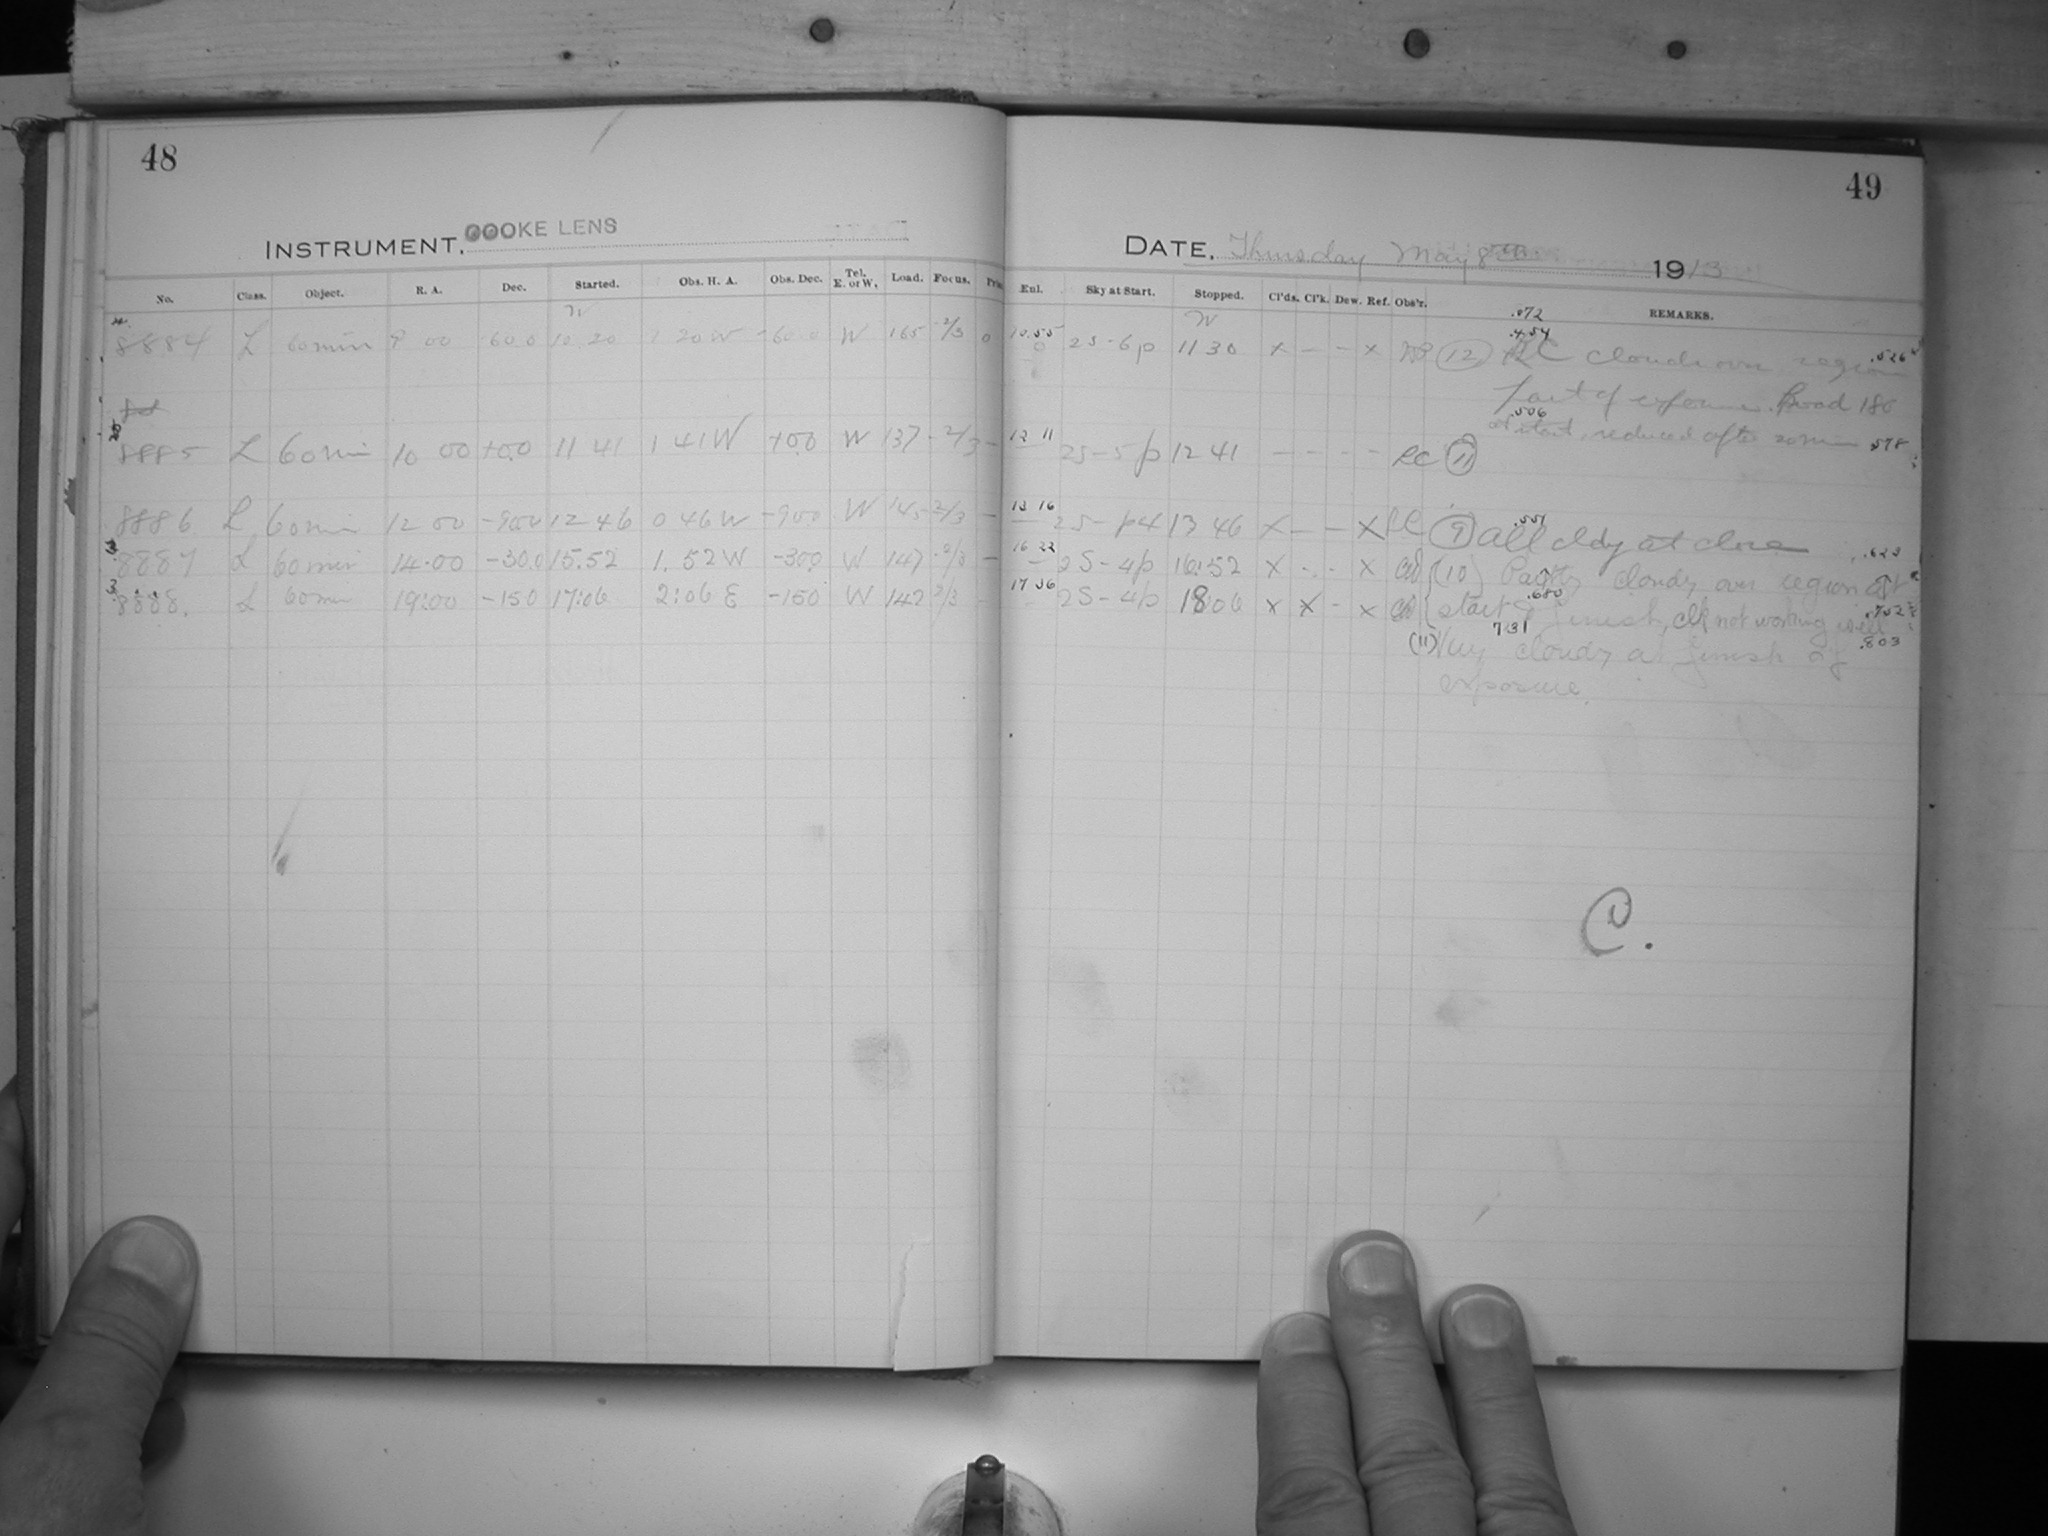 48
INSTRUMENT. COOKE LENS
No. Class. Object. R. A. Dec. Started. Obs. H. A. Obs. Dec. Tel. E. or W. Load. Focus.
8884 L 60 min 9 00 -60.0 10 20 1 20 W -60.0 W 165 -2/3 0
8885 L 60 min 10 00 +0.0 11 41 1 41 W +0.0 W 137 -2/3 —
8886 L 60 min 12 00 -90.0 12 46 0 46 W -90.0 W 145 -2/3 —
8887 L 60 min 14.00 -30.0 15.52 1.52 W -30.0 W 147 -2/3 —
8888. L 60 min 19:00 -15.0 17:06 2:06 E -15.0 W 142 2/3 -
49
DATE. Thursday May 8 1913
Enl. Sky at Start. Stopped. Cl'ds. Cl'k. Dew. Ref. Obs'r. REMARKS.
.072
.454
10.55 0 2S-6p 11 30 x - - x (12) clouds over region .526
part of exposure. Load 180
.506
at start, reduced after 20 min .578
12 11 2S-5p 12 41 - - - - RC (11)
13 16 2S-p4 13 46 x - - x RC (9) all cldy at close
.551
.623
16 22 2S-4p 16:52 x - - x (10) Partly cloudy over region at
17 36 2S-4p 18:06 x x - x start & finish, clk not working well
.680
.752
731
.803
(11) Very cloudy at finish of
exposure.
C.